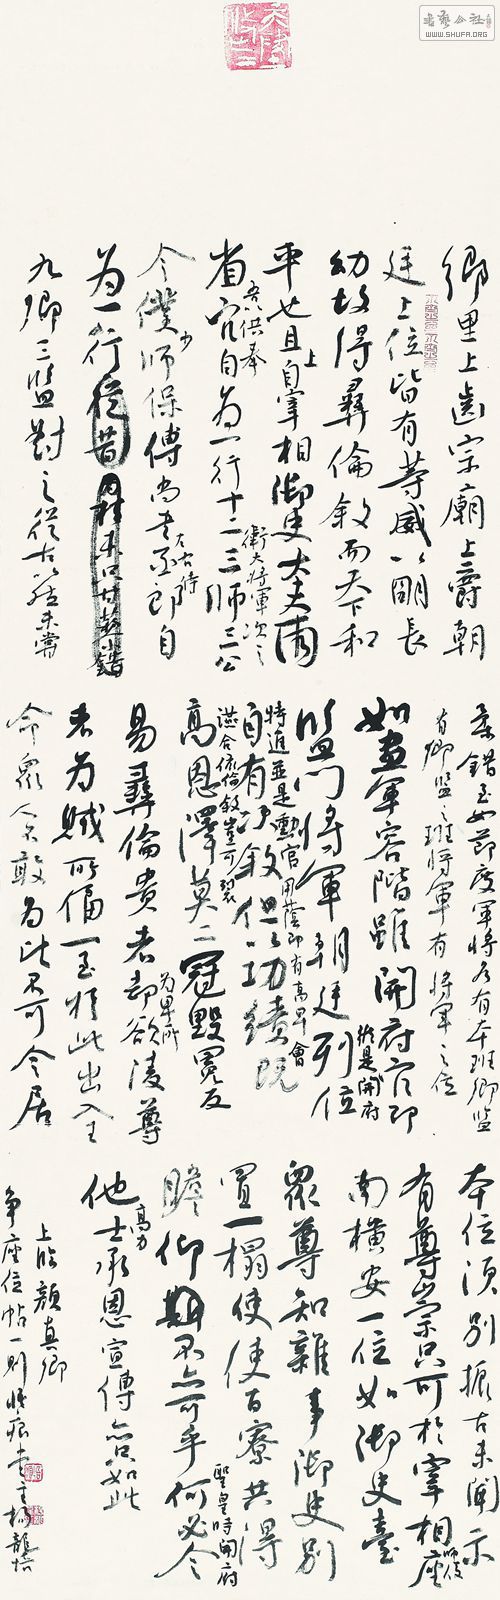 鄉里上齒宗廟上爵朝
廷上位皆有等威以明長
幼故得彝倫敘而天下和
平也且上自宰相御史大夫兩
省供奉官自為一行十二衛大將軍次之三師三公
令僕少師保傅尚書左右丞侍郎自
為一行
九卿三監對之從古以然未嘗
參錯至如節度軍將各有本班卿監
有卿監之班將軍有將軍之位
如魚軍容階雖開府官即
縱是開府
監門將軍朝廷列位
特進並是勳官用蔭即有高卑會
自有次敘但以功績既
讌合依倫敘豈可裂
高恩澤莫二冠毀冕反
易彝倫貴者為卑所卻欲陵尊
者為賊所逼一至於此出入王
命眾人不敢為比不可令居
本位須別振古未聞示
有尊崇只可於宰相師保座
南橫安一位如御史臺
眾尊知雜事御史別
置一榻使使百寮共得
瞻仰不亦可乎何必令
聖皇時開府
高力
他士承恩宣傳亦只如此
上臨顏真卿
爭座位帖一則
WWW.SHUFA.ORG